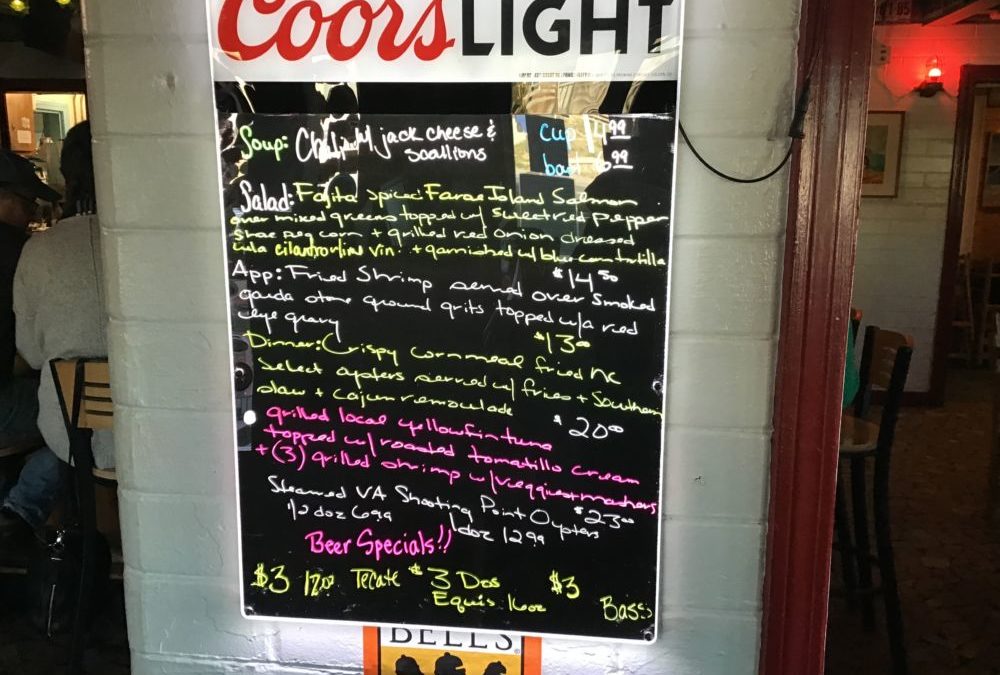 Coors LIGHT
Soup: Chili w/ jack cheese & scallions
cup 4.99
bowl 6.99
Salad: Fajita spiced Faroe Island Salmon
over mixed greens topped w/ sweet red pepper
corn + grilled red onion dressed
w/a cilantro lime vin. + garnished w/ blue corn tortilla
$14.50
App: Fried Shrimp served over Smoked
gouda stone ground grits topped w/a red
eye gravy
$13.00
Dinner: Crispy cornmeal fried NC
select oysters served w/ fries + Southern
slaw + cajun remoulade
$20.00
grilled local yellowfin tuna
topped w/ roasted tomatillo cream
+ (3) grilled shrimp w/ veggies + mashers
$23.00
Steamed VA Shooting Point Oysters
1/2 doz 6.99
1 doz 12.99
Beer Specials!!
$3 12oz Tecate
$3 Dos Equis 16oz
$3 Bass
BELL'S